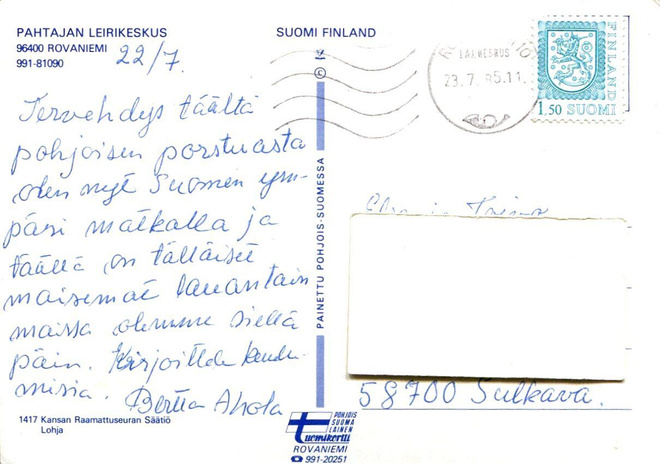 PAHTAJAN LEIRIKESKUS
96400 ROVANIEMI
991-81090
22/7.
Tervehdys täältä
pohjoisen porstuasta
olen nyt Suomen ym-
päri matkalla ja
täällä on tälläiset
maisemat lauantain
maissa olemme siellä
päin. Kirjoittele kuulu-
misia. Bertta Ahola
1417 Kansan Raamattuseuran Säätiö
Lohja
PAINETTU POHJOIS-SUOMESSA
POHJOIS
SUOMA
LAINEN
Tuomikortti
ROVANIEMI
991-20251
SUOMI FINLAND
23.7. 85.11
FINLAND
1.50 SUOMI
58700 Sulkava.